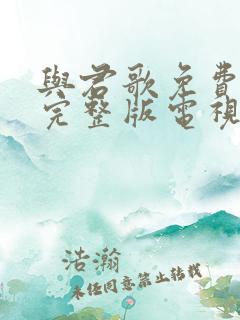 與君歌免費
完整版電視
浩瀚
未經同意禁止轉載